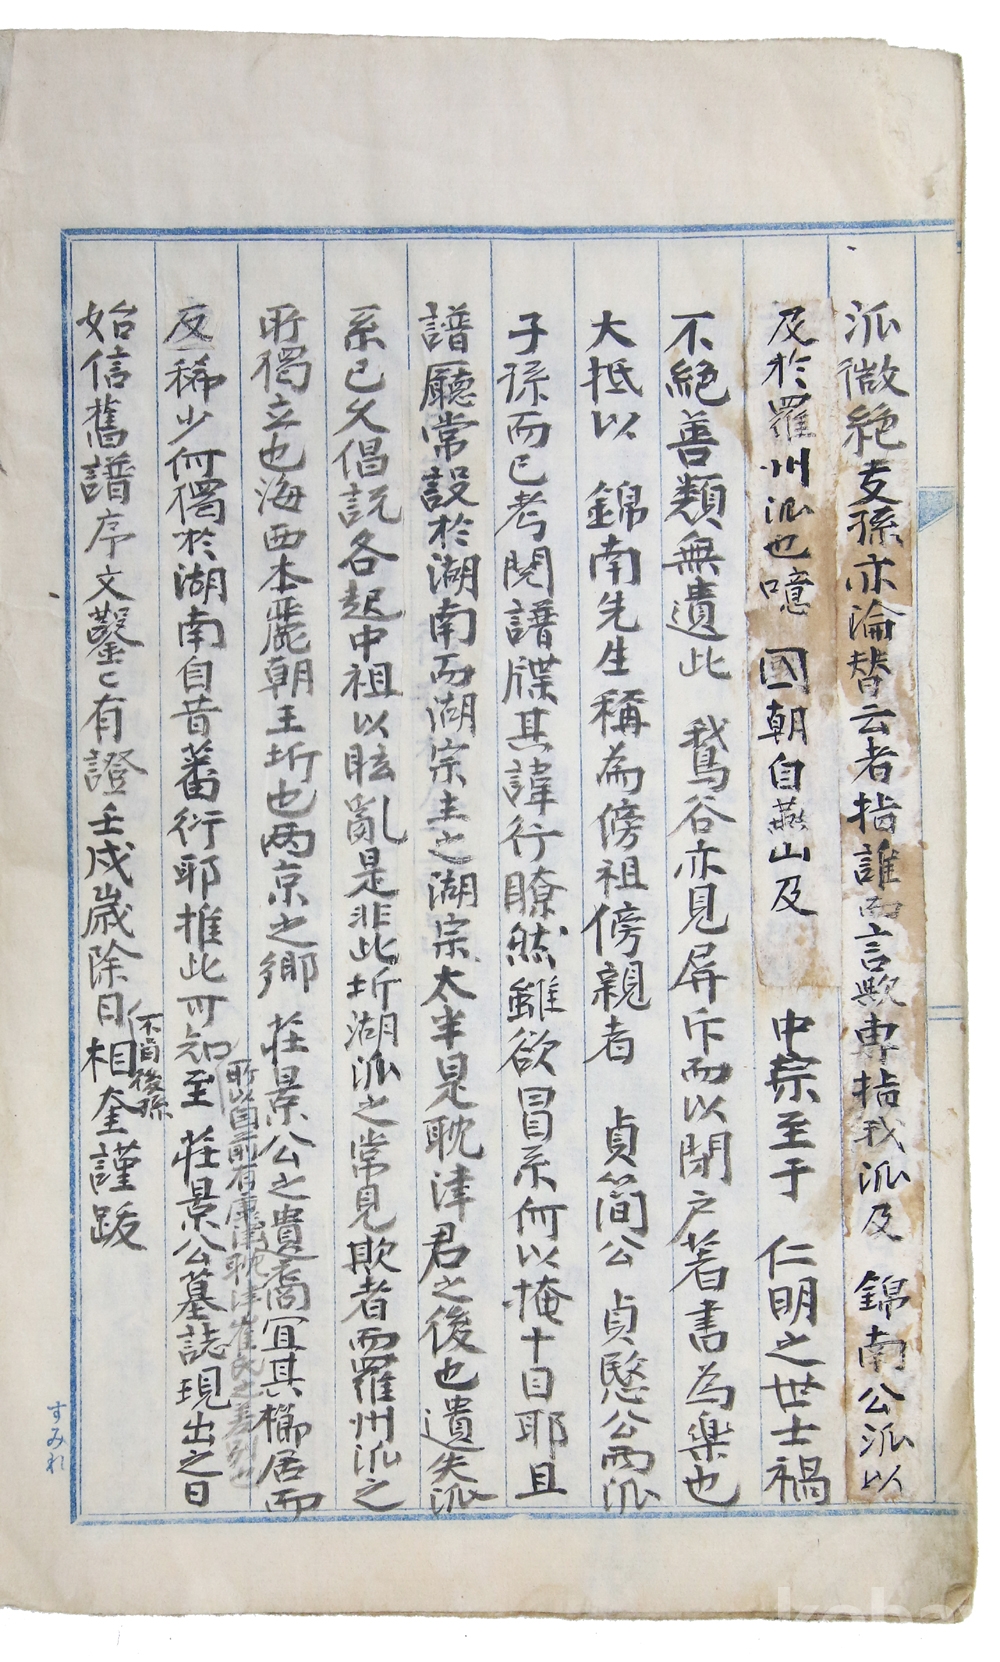 派微絶支孫亦淪替云者指誰而言歟專指我派及 錦南公派以
及於羅州派也噫 國朝自燕山及 中宗至于 仁明之世士禍
不絶善類無遺此 我鳥谷亦見屏斥而以閉户著書為樂也
大抵以 錦南先生稱為傍祖傍親者 貞簡公 貞愍公両派
子孫而已考閱譜牒其諱行瞭然雖欲冒系何以掩十目耶且
譜廳常設於湖南而湖宗主之湖宗太半是耽津君之後也遺失派
系已久倡説各起中祖以眩亂是非此圻湖派之常見欺者而羅州派之
所獨立也海西本麗朝王圻也两京之鄉 莊景公之遺裔宜其櫛居而
所以自前有 耽津崔氏之
反稀少何獨於湖南自昔蕃衍耶推此可知至 莊景公墓誌現出之日
不肖後孫
始信舊譜序文鑿〻有證壬戌歲除日相奎謹跋
すみれ
koba